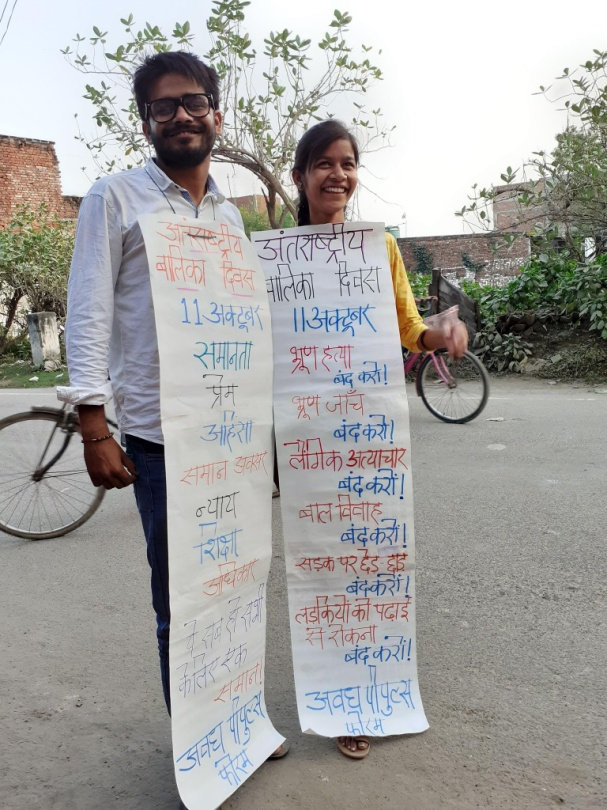 अंतराष्ट्रीय
बालिका दिवस
11 अक्टूबर
समानता
प्रेम
अहिंसा
समान अवसर
न्याय
शिक्षा
अधिकार
ये सब हो सभी
के लिए एक
समान!
अवध पीपुल्स
फोरम
अंतराष्ट्रीय
बालिका दिवस
11 अक्टूबर
भ्रूण हत्या
बंद करो!
भ्रूण जाँच
बंद करो!
लैंगिक अत्याचार
बंद करो!
बाल विवाह
बंद करो!!
सड़क पर छेड़ छाड़
बंद करो!
लड़कियों को पढ़ाई
से रोकना
बंद करो!
अवध पीपुल्स
फोरम